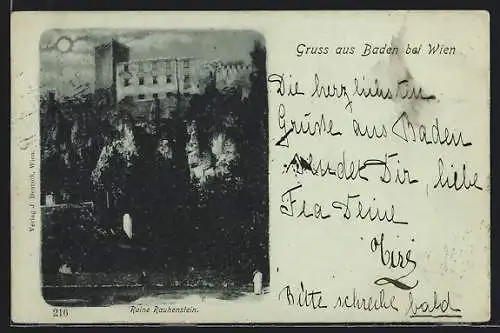 Gruss aus Baden bei Wien
Die herzlichsten
Grüsse aus Baden
sendet Dir, liebe
Deine
Bitte schreibe bald
Verlag J. Wien.
210
Ruine Rauhenstein.